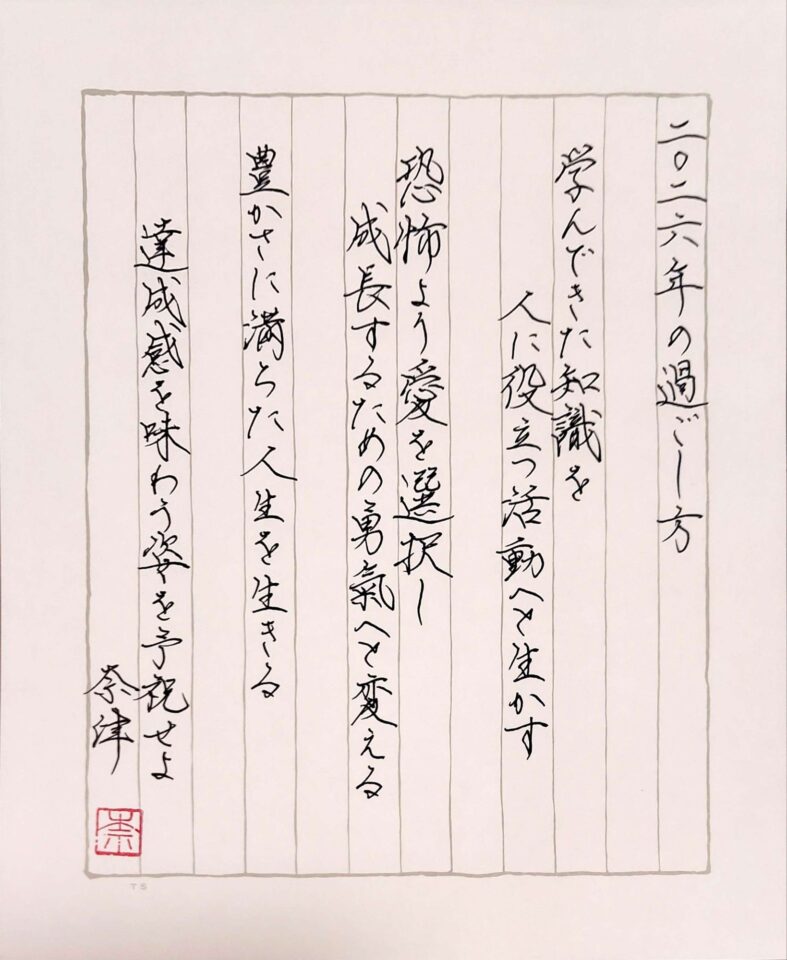 二〇二六年の過ごし方
学んできた知識を
人に役立つ活動へと生かす
恐怖より愛を選択し
成長するための勇氣へと変える
豊かさに満ちた人生を生きる
達成感を味わう姿を予祝せよ
奈津
奈
TS